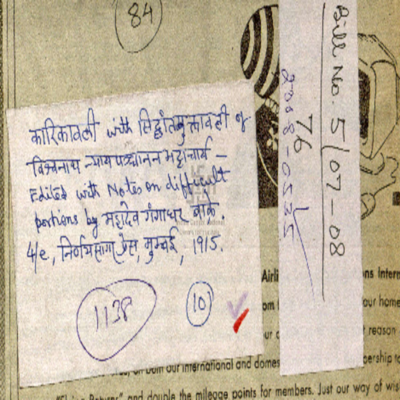 84
कारिकावली with सिद्धांतमुक्तावली of
विश्वनाथ न्यायपञ्चानन भट्टाचार्य –
Edited with Notes on difficult
portions by महादेव गंगाधर बाक्रे.
4/e, निर्णयसागर प्रेस, मुम्बई, 1915.
1138
10
Bill No. 5/07-08
76
2008-0535
Airli
ns Intern
om
our home
our
reason
on both our international and domes
pership to
"Flying Returns" and double the mileage points for members. Just our way of wis